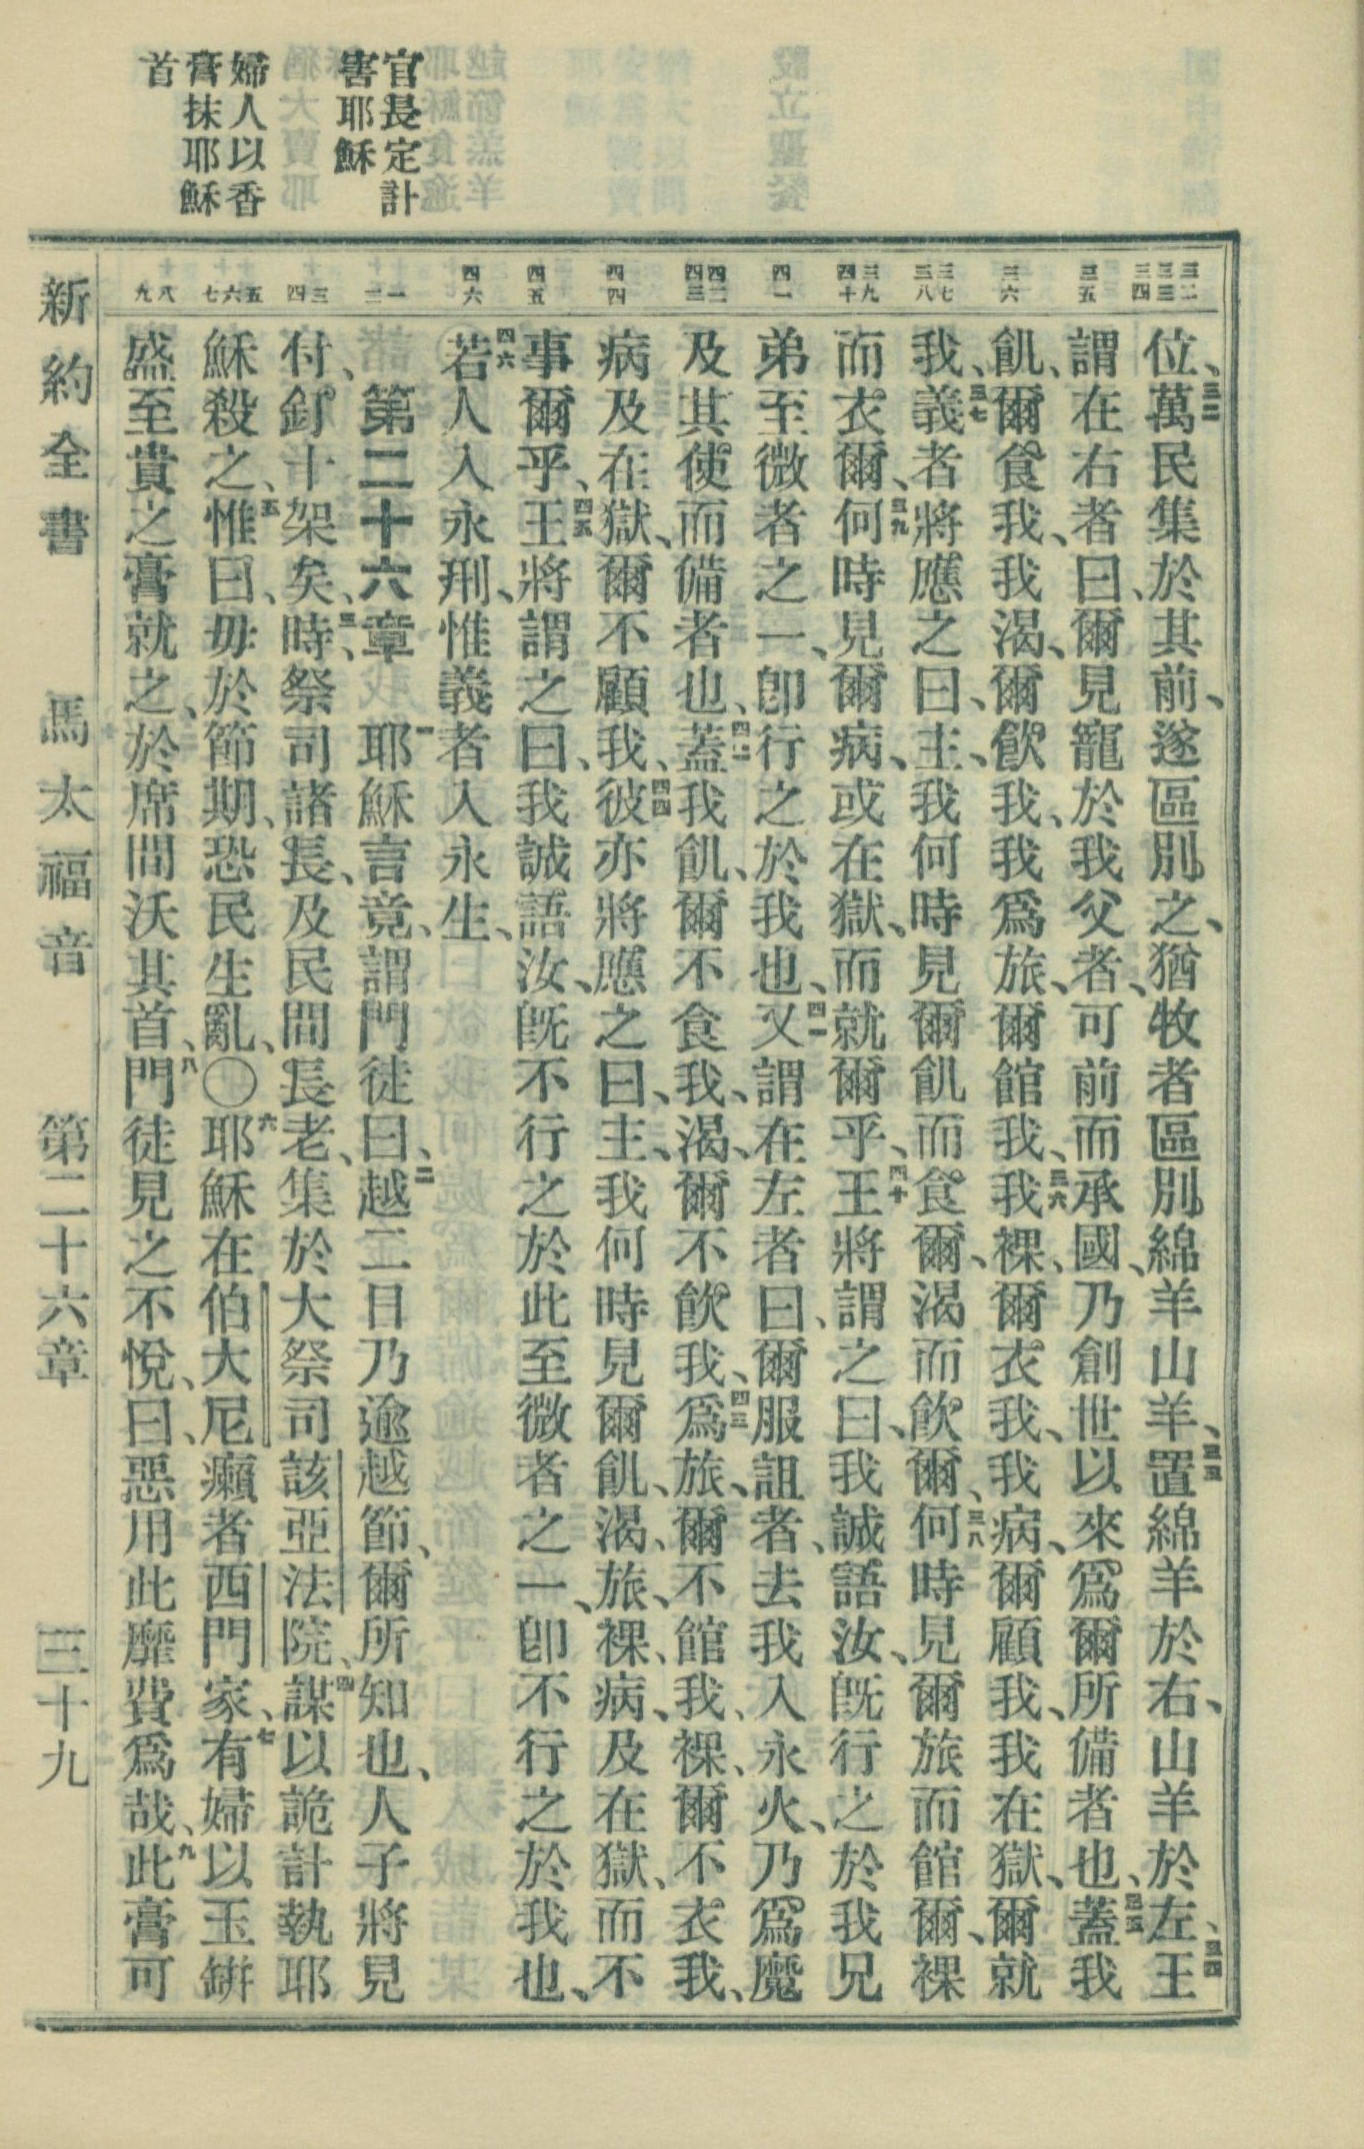 官長定計
害耶穌
婦人以香
膏抹耶穌
首
三二 三三 三四
三五
三六
三七 三八
三九 四十
四一
四二 四三
四四
四五
四六
一 二
三 四
五 六 七
八 九
位、三二萬民集於其前、遂區別之、猶牧者區別綿羊山羊、三三置綿羊於右、山羊於左、三四王
謂在右者曰、爾見寵於我父者、可前而承國、乃創世以來爲爾所備者也、三五蓋我
飢、爾食我、我渴、爾飮我、我爲旅、爾館我、三六我裸、爾衣我、我病、爾顧我、我在獄、爾就
我、三七義者將應之曰、主、我何時見爾飢而食爾、渴而飮爾、三八何時見爾旅而館爾、裸
而衣爾、三九何時見爾病、或在獄、而就爾乎、四十王將謂之曰、我誠語汝、旣行之於我兄
弟至微者之一、卽行之於我也、四一又謂在左者曰、爾服詛者、去我入永火、乃爲魔
及其使而備者也、四二蓋我飢、爾不食我、渴、爾不飮我、四三爲旅、爾不館我、裸、爾不衣我、
病及在獄、爾不顧我、四四彼亦將應之曰、主、我何時見爾飢、渴、旅、裸、病、及在獄、而不
事爾乎、四五王將謂之曰、我誠語汝、旣不行之於此至微者之一、卽不行之於我也、
四六若人入永刑、惟義者入永生、
第二十六章 一耶穌言竟、謂門徒曰、二越二日乃逾越節、爾所知也、人子將見
付、釘十架矣、三時、祭司諸長、及民間長老、集於大祭司該亞法院、四謀以詭計執耶
穌殺之、五惟曰、毋於節期、恐民生亂、〇六耶穌在伯大尼癩者西門家、七有婦以玉缾
盛至貴之膏就之、於席間沃其首、八門徒見之不悅、曰、惡用此靡費爲哉、九此膏可
新約全書 馬太福音 第二十六章 三十九